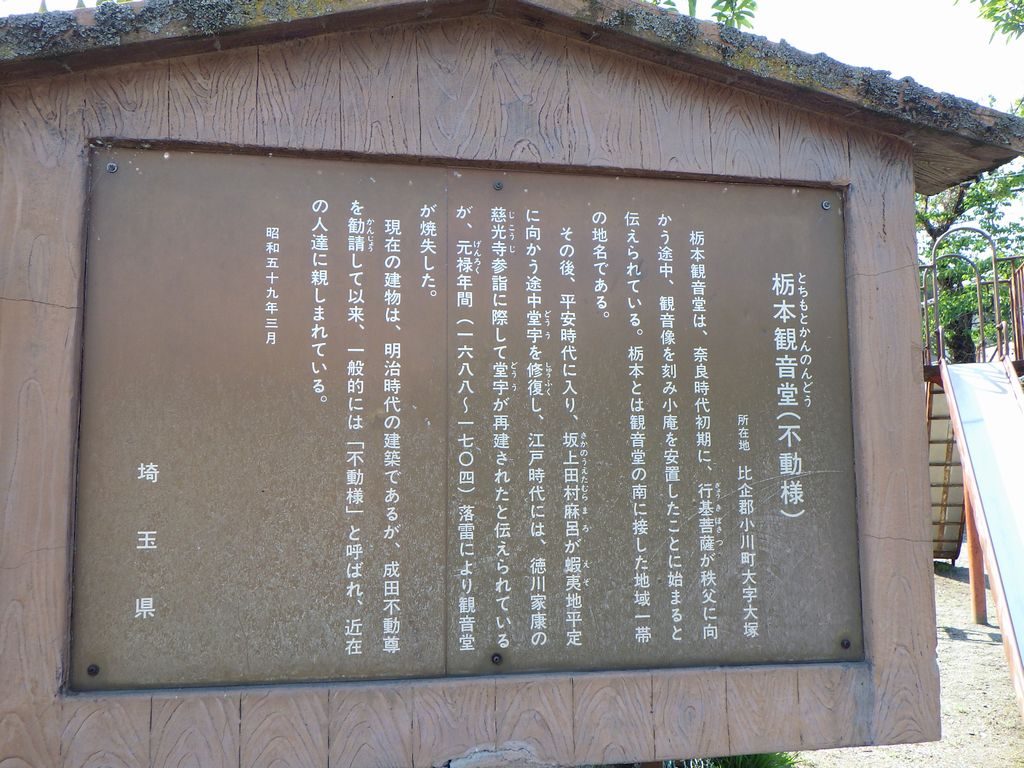 とちもとかんのんどう
栃本観音堂(不動様)
所在地 比企郡小川町大字大塚
栃本観音堂は、奈良時代初期に、行基菩薩が秩父に向
かう途中、観音像を刻み小庵を安置したことに始まると
伝えられている。栃本とは観音堂の南に接した地域一帯
の地名である。
その後、平安時代に入り、坂上田村麻呂が蝦夷地平定
に向かう途中堂宇を修復し、江戸時代には、徳川家康の
慈光寺参詣に際して堂宇が再建されたと伝えられている
が、元禄年間(一六八八〜一七〇四)落雷により観音堂
が焼失した。
現在の建物は、明治時代の建築であるが、成田不動尊
を勧請して以来、一般的には「不動様」と呼ばれ、近在
の人達に親しまれている。
昭和五十九年三月
埼玉県